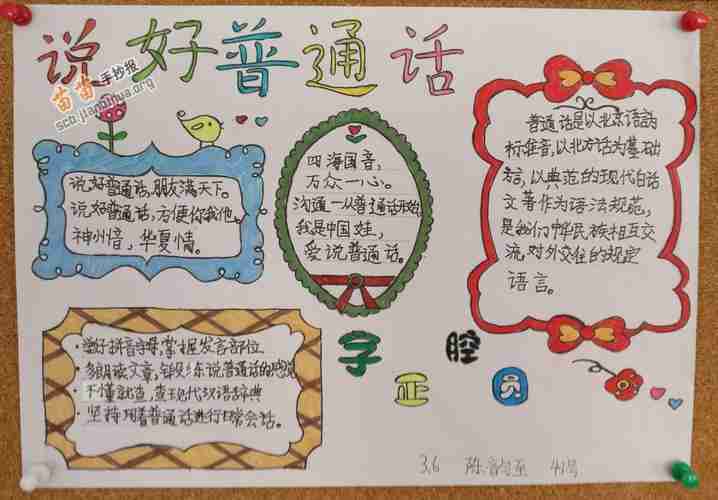 说好普通话
苗苗手抄报
scb.jianbihua.org
说好普通话,朋友满天下。
说好普通话,方便你我他。
神州音,华夏情。
四海国音,
万众一心。
沟通一从普通话开始
我是中国娃,
爱说普通话。
普通话是以北京语音为
标准音,以北方话为基础
言,以典范的现代白话
文著作为语法规范,
是我们中华民族相互交
流,对外交往的规定
语言。
·学好拼音字母,掌握发言部位
·多朗读文章,锻炼说普通话的感觉
·不懂就查,查现代汉语词典
·坚持用普通话进行日常会话。
字正腔员
3.6 陈 至 41号